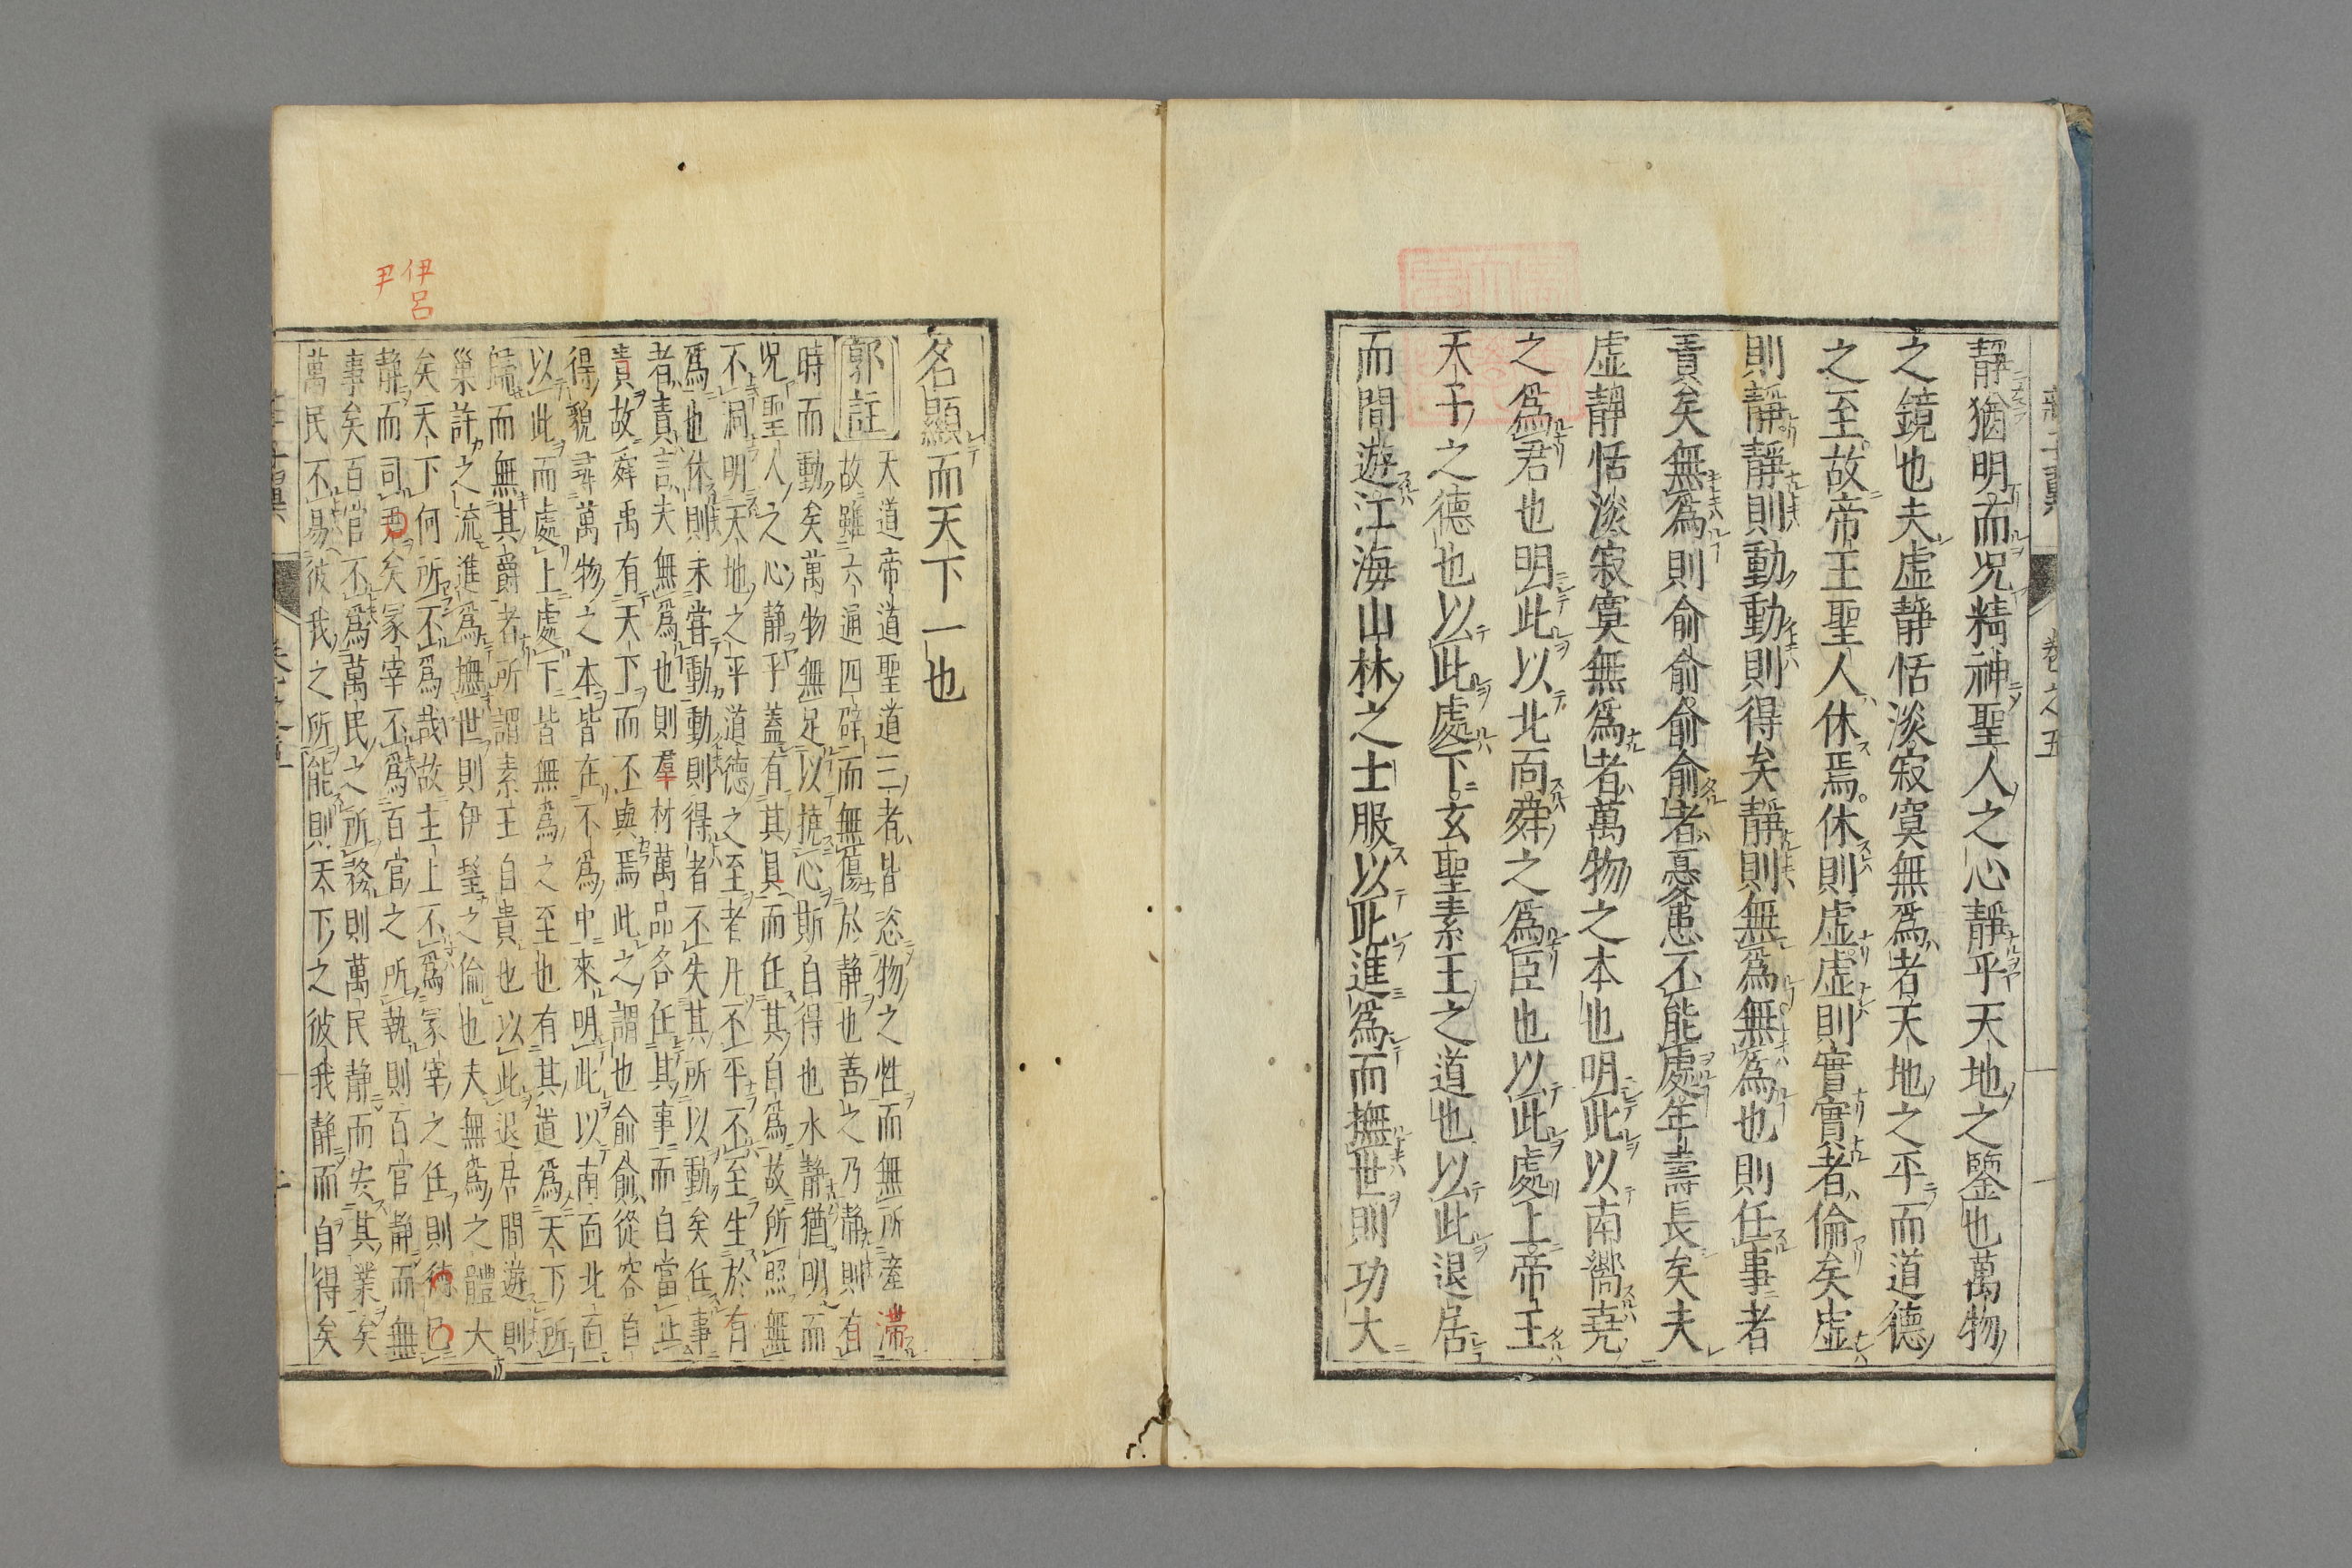 靜猶明而況精神聖人之心靜乎天地之鑒也萬物
之鏡也夫虛靜恬淡寂寞無爲者天地之平而道德
之至故帝王聖人休焉休則虛虛則實實者倫矣虛
則靜靜則動動則得矣靜則無爲無爲也則任事者
責矣無爲則俞俞俞俞者憂患不能處年壽長矣夫
虛靜恬淡寂寞無爲者萬物之本也明此以南嚮堯
之爲君也明此以北面舜之爲臣也以此處上帝王
天子之德也以此處下玄聖素王之道也以此退居
而間遊江海山林之士服以此進爲而撫世則功大
名顯而天下一也
郭註
天道帝道聖道三者皆恣物之性而無所滯
故雖六通四辟而無傷於静也善之乃静則有
時而動矣萬物無足以撓心斯自得也水静猶明而
况聖人之心静乎蓋有其具而任其自爲故所照無
不洞明天地之平道德之至者凡不平不至生於有
爲也休則未嘗動動則得者不失其所以動矣任事
者責言夫無爲也則羣材萬品各任其事而自當其
責故舜禹有天下而不與焉此之謂也俞俞從容自
得貌尋萬物之本皆在不爲中來明此以南面北面
以此而處上處下皆無爲之至也有其道爲天下所
歸而無其爵者所謂素王自貴也以此退居間遊則
巢許之流進爲撫世則伊望之倫也夫無爲之體大
矣天下何所不爲哉故主上不爲冢宰之任則
静而司尹矣冢宰不爲百官之所執則百官静而無
事矣百官不爲萬民之所務則萬民静而安其業矣
萬民不易彼我之所能則天下之彼我静而自得矣
伊呂
尹
卷之五